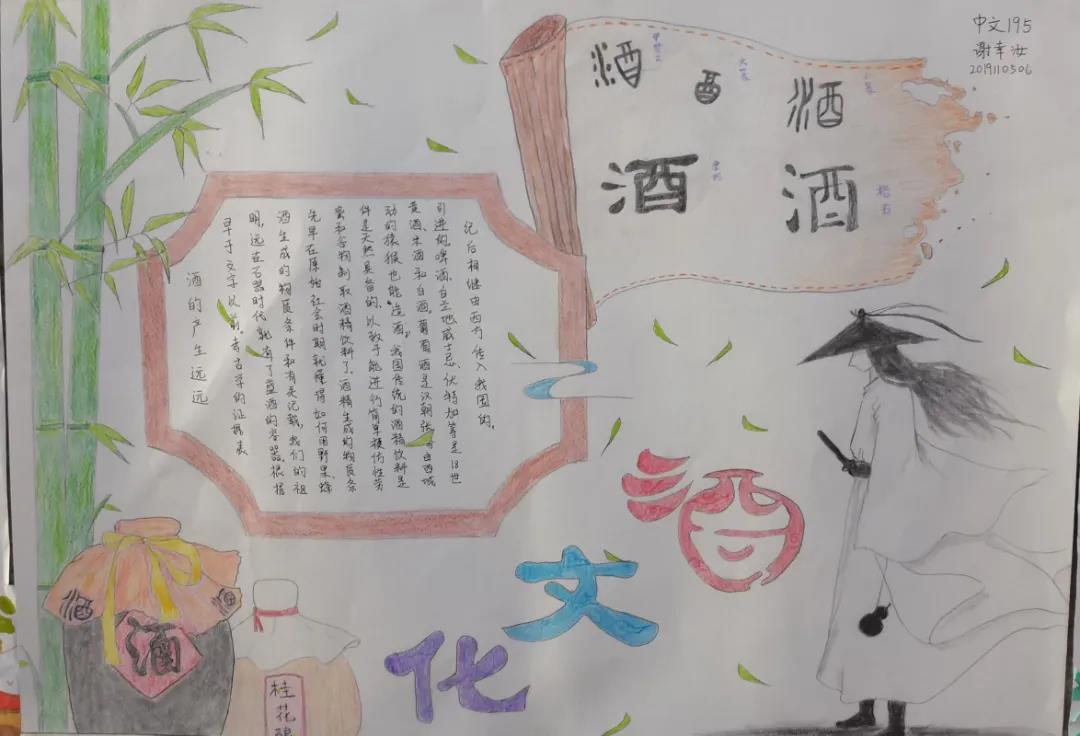 中文195
谢幸汝
2019110506
酒 甲骨文
酉
酒
酒
酒 楷书
酒的产生远远
早于文字以前,考古学的证据表
明,远在石器时代,就有了盛酒的容器。根据
酒生成的物质条件和有关记载,我们的祖
先早在原始社会时期就懂得如何用野果、蜂
蜜和谷物制取酒精饮料了。酒精生成的物质条
件是天然具备的,以致于能进行简单模仿性劳
动的猿猴也能“造酒”。我国传统的酒精饮料是
黄酒、米酒和白酒。葡萄酒是汉朝张由西域
引进的,啤酒、白兰地、威士忌、伏特加等是18世
纪后相继由西方传入我国的。
酒
文
化
酒
酒
酒
桂花酿